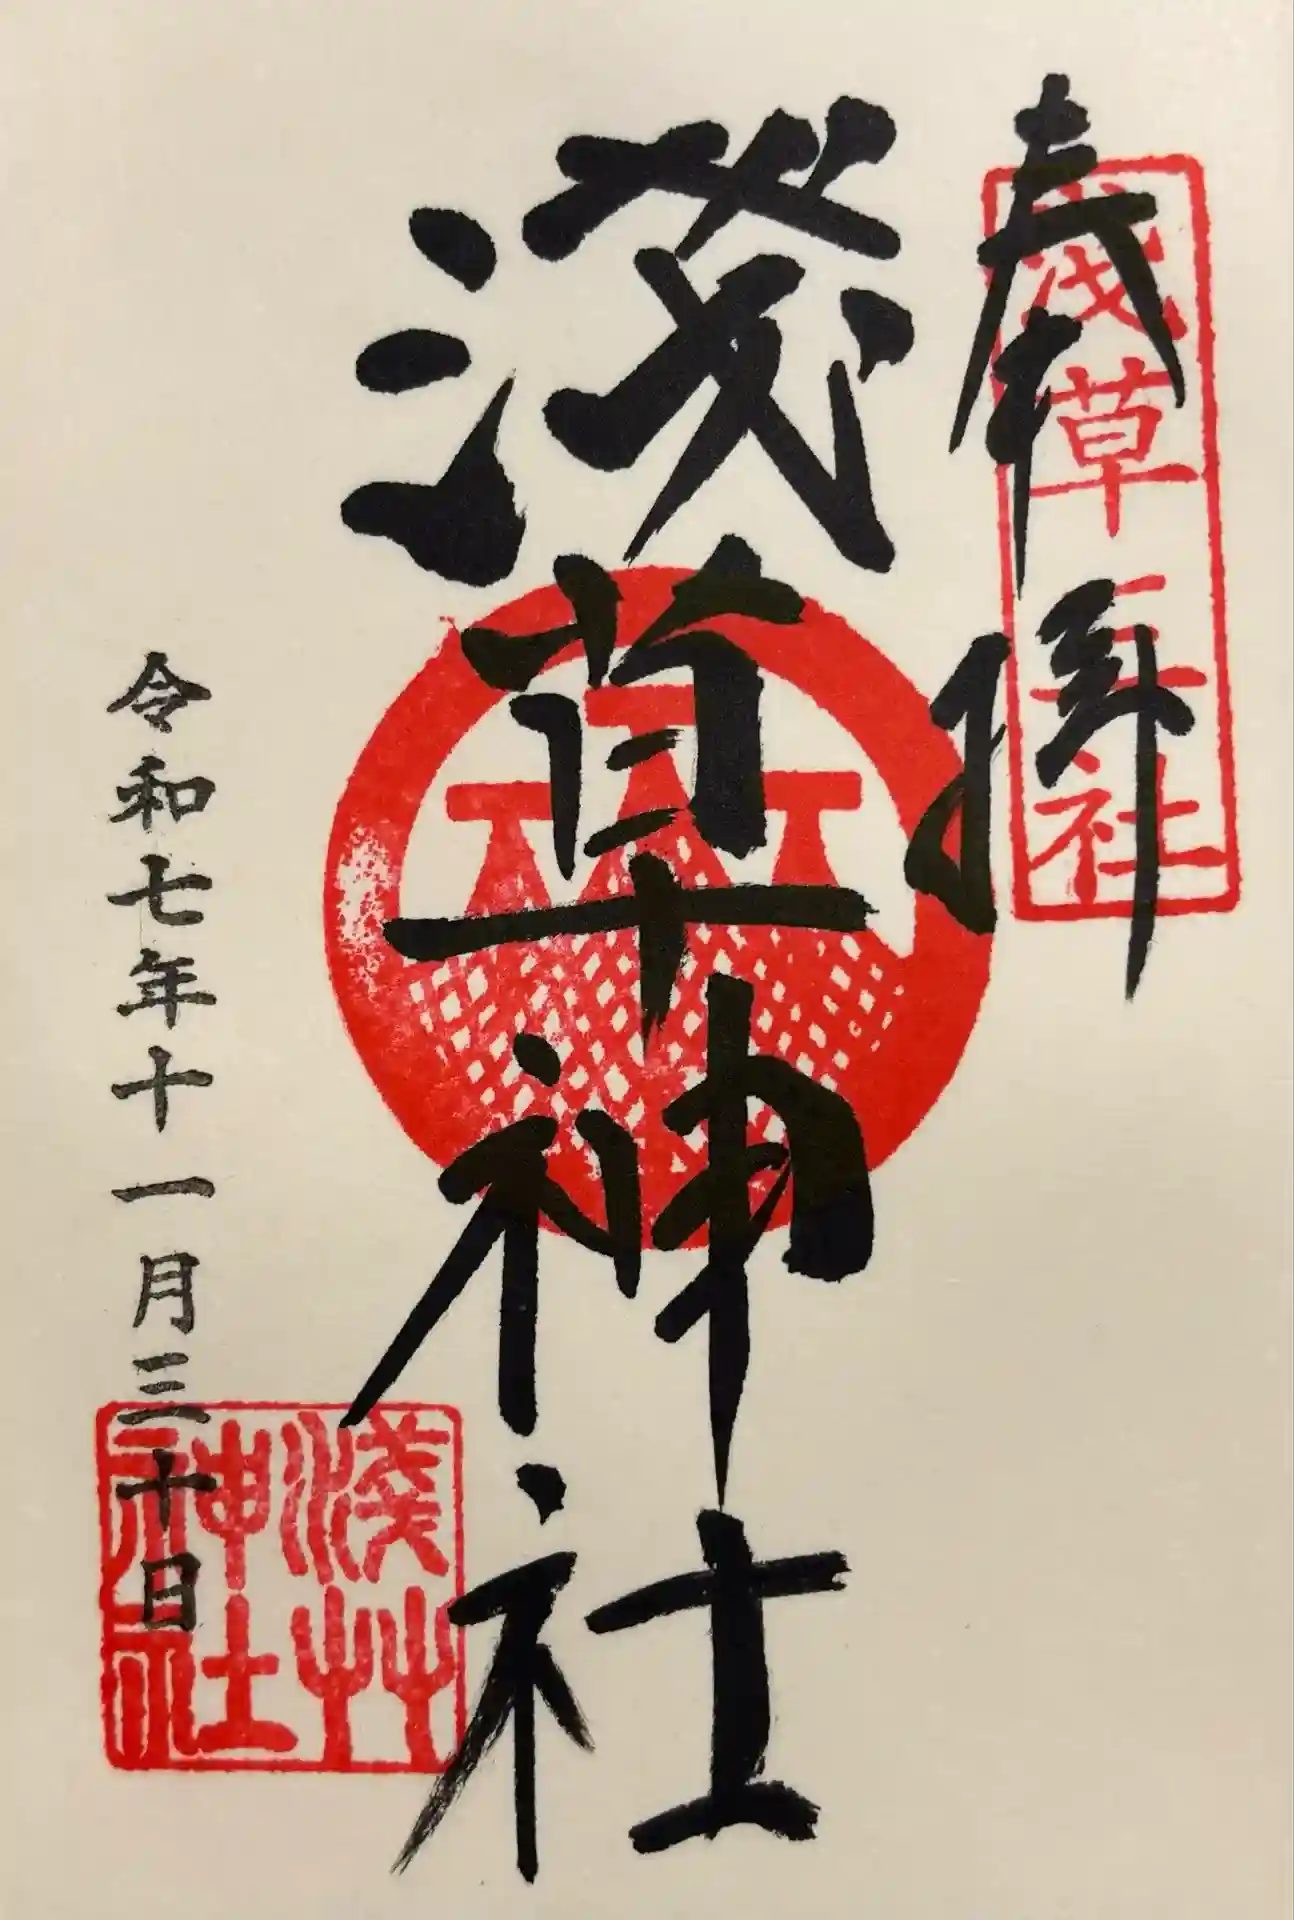 奉拝
浅草三社
淺草神社
令和七年十一月三十日
淺艸
神社